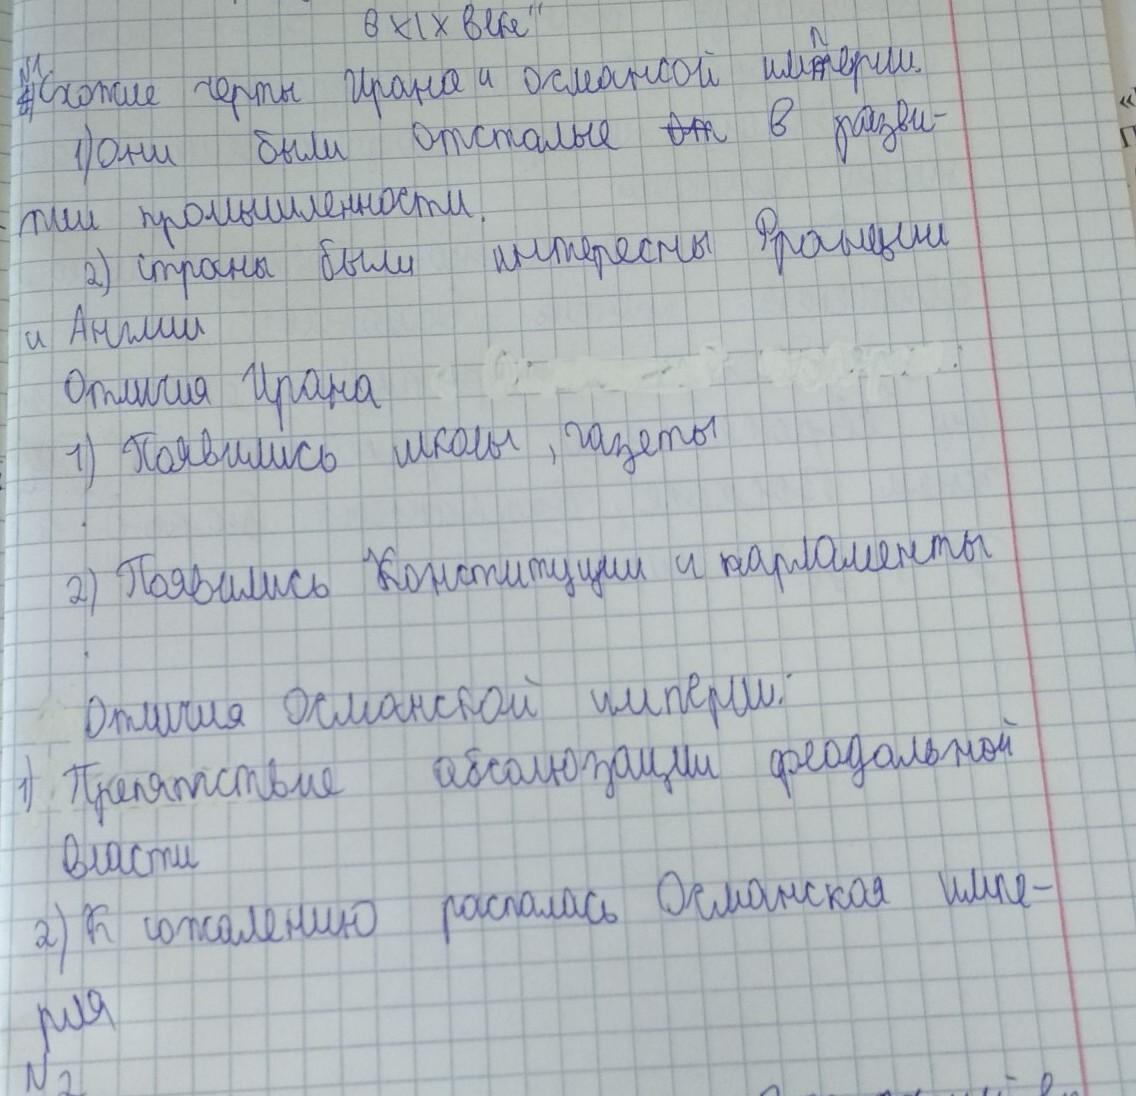 в XIX веке"
№1
Схожие черты Ирана и османсой империи.
1) Они были отсталые от в разви-
тии промышленности.
2) страны были интересны Франции
и Англии
Отличия Ирана
1) Появились школы, газеты
2) Появились Конституции и парламенты
Отличия Османской империи:
1) Препятствие абсолютзации феодальной
власти
2) К сожалению распалась Османская импе-
рия
№2